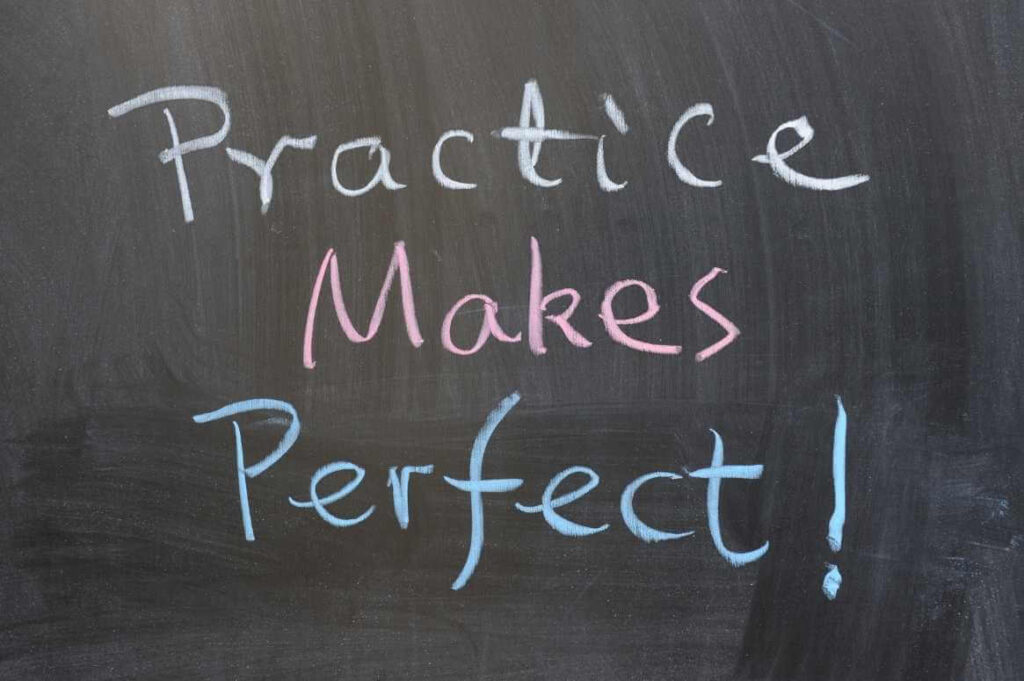 Practice
Makes
Perfect!